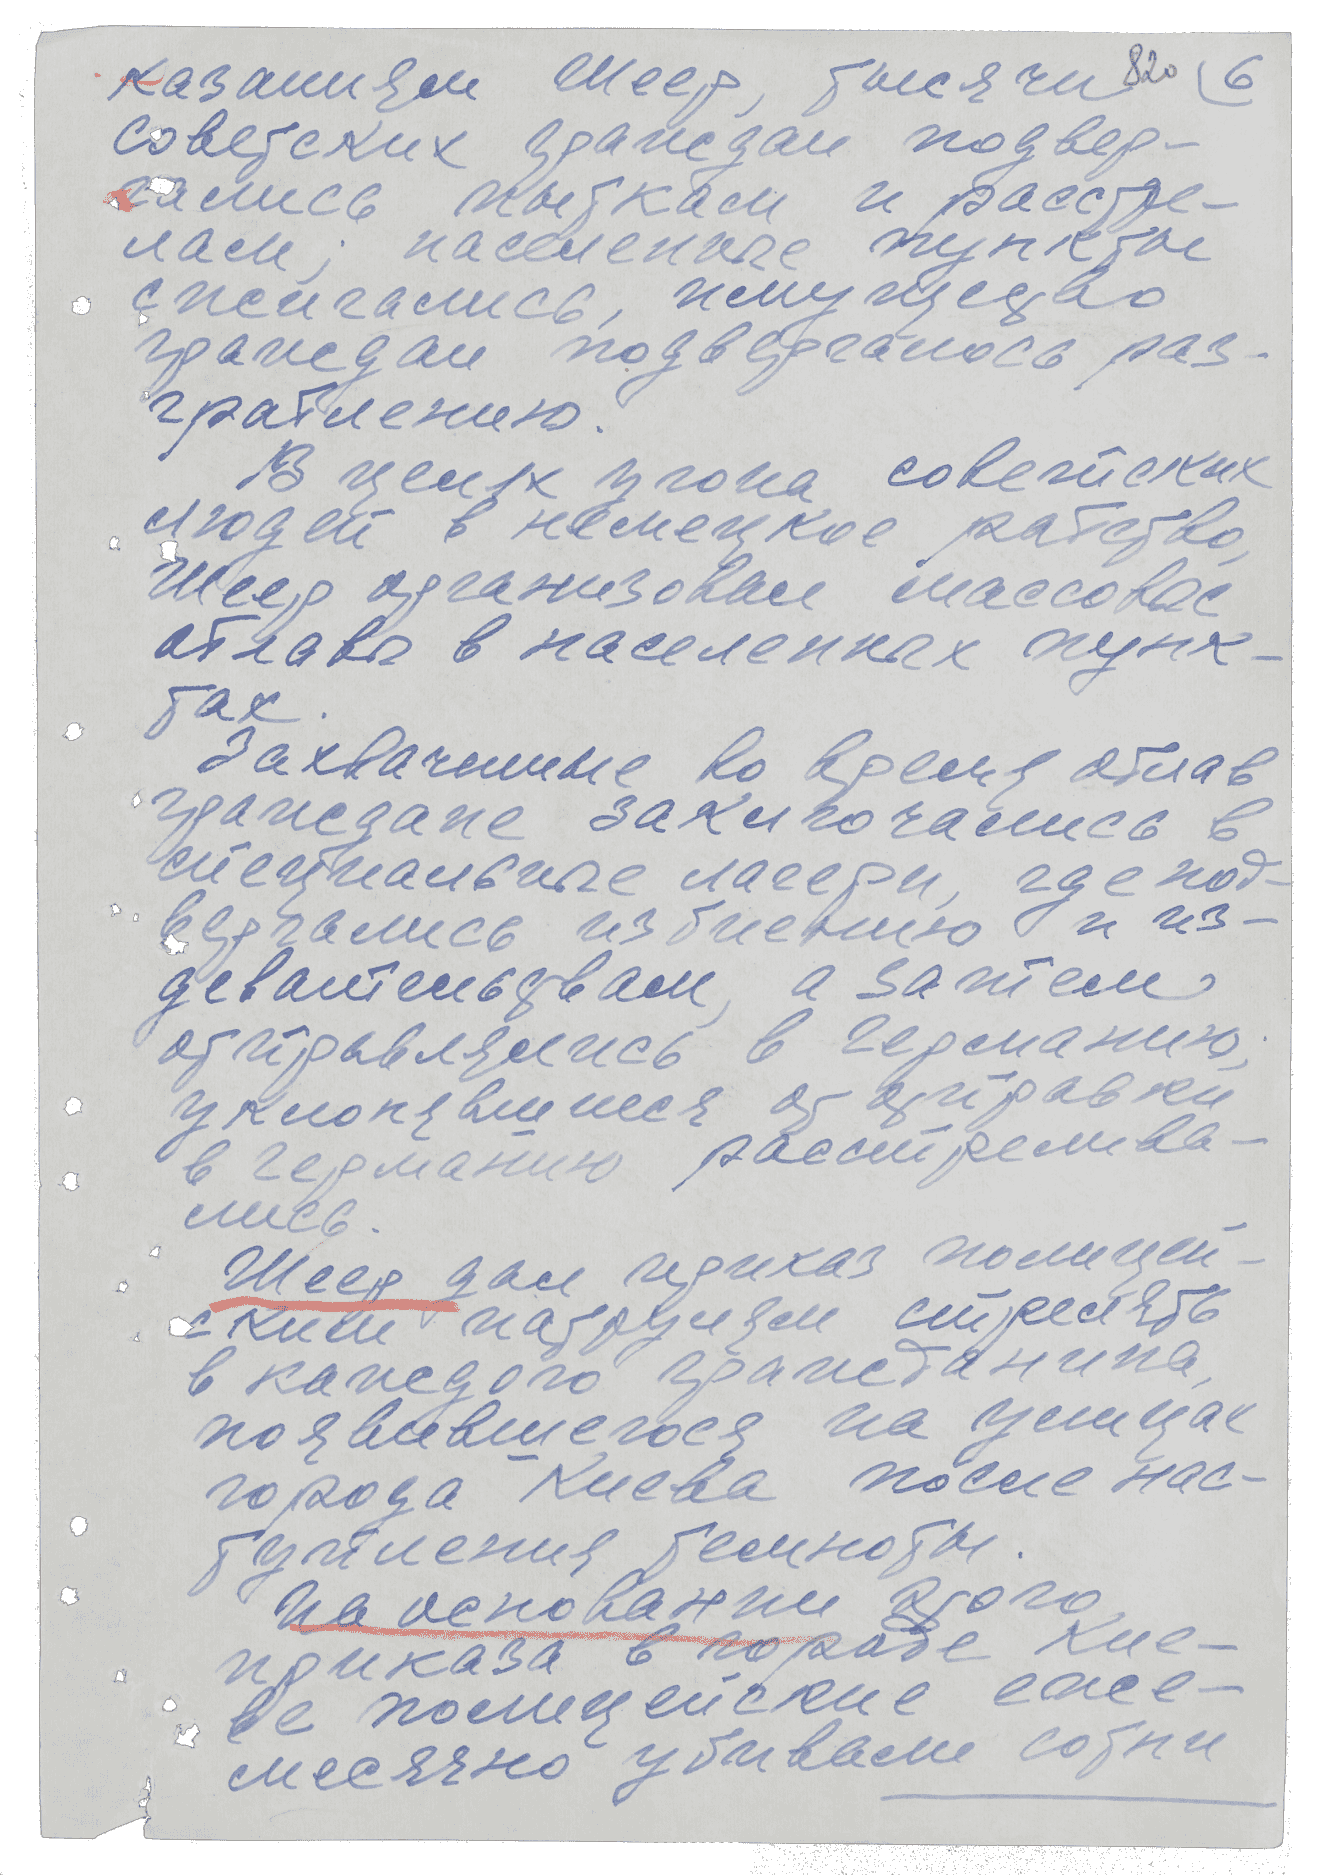 казаниям Шеер, тысячи 820 6
советских граждан подвер-
гались пыткам и расстре-
лам; населенные пункты
сжигались, имущество
граждан подвергалось раз-
граблению.
В целях угона советских
людей в немецкое рабство,
Шеер организовал массовые
облавы в населенных пунк-
тах.
Захваченные во время облав
граждане заключались в
специальные лагери, где под-
вергались избиению и из-
девательствам, а затем
отправлялись в Германию;
уклонявшиеся от отправки
в Германию расстрелива-
лись.
Шеер дал приказ полицей-
ским патрулям стрелять
в каждого гражданина,
появившегося на улицах
города Киева после нас-
тупления темноты.
На основании этого
приказа в городе Кие-
ве полицейские еже-
месячно убивали сотни